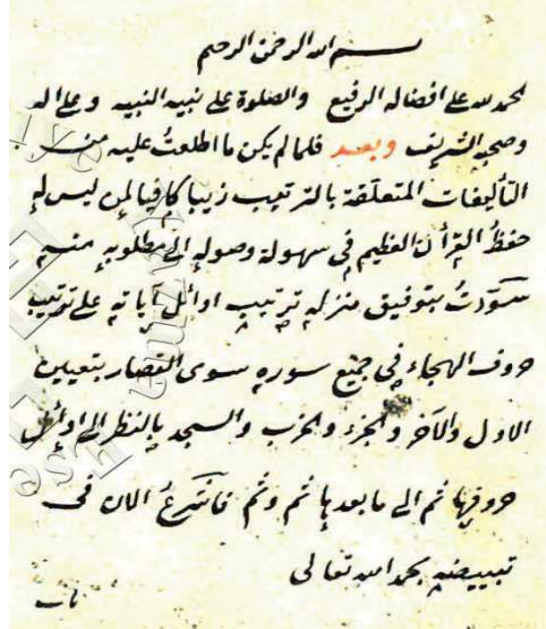 بسم الله الرحمن الرحيم
الحمد لله على افضاله الرفيع والصلوة على نبيه النبيه وعلى اله
وصحبه الشريف وبعد فلما لم يكن ما اطلعتُ عليه من
التأليفات المتعلّقة بالترتيب زيبا كافيا لمن ليس له
حفظُ القرأن العظيم في سهولة وصوله الى مطلوبه منه
سوّدتُ بتوفيق منزله ترتيب اوائل آياته على ترتيب
حروف الهجاء في جميع سوره سوى القصار بتعيين
الاول والآخر والجزء والحزب والسجد بالنظر الى اوائل
حروفها ثم الى ما بعدها ثم وثم فاشرعُ الان فى
تبييضه بحمد الله تعالى
باب